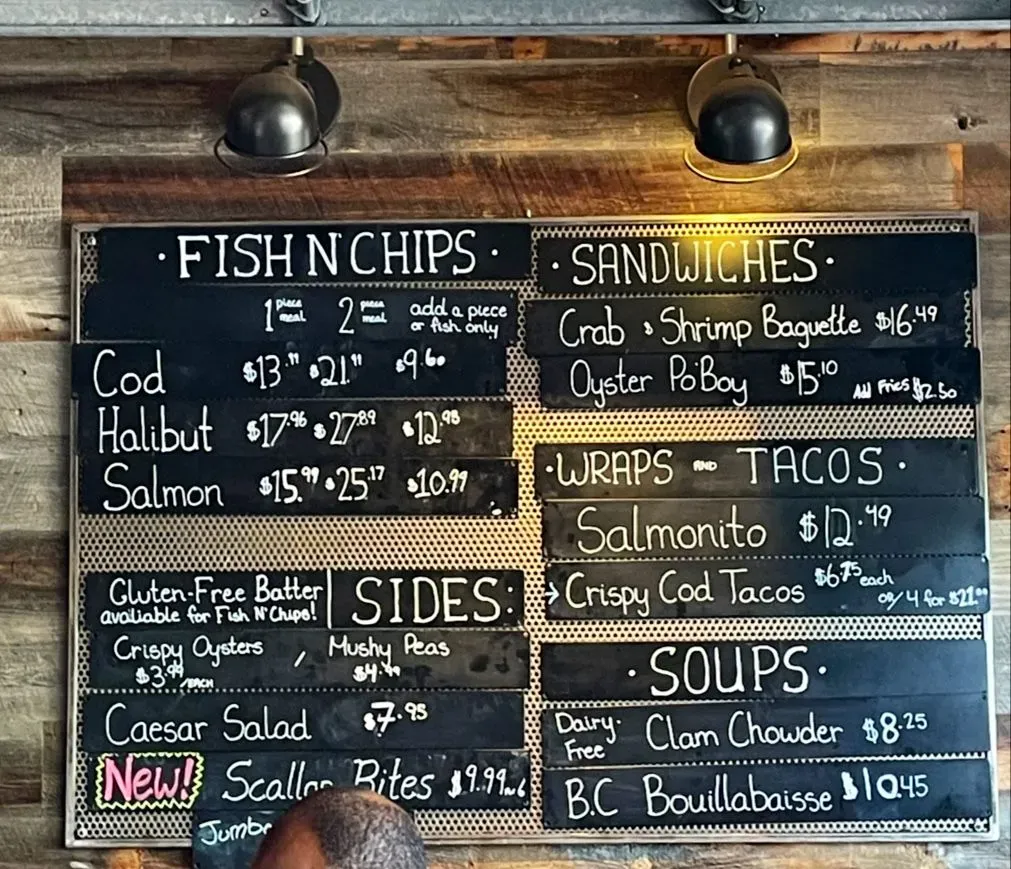 · FISH N' CHIPS ·
1 piece meal 2 piece meal add a piece or fish only
Cod $13.11 $21.11 $9.60
Halibut $17.96 $27.89 $12.98
Salmon $15.99 $25.17 $10.99
Gluten-Free Batter
avaliable for Fish N' Chips!
SIDES:
Crispy Oysters / Mushy Peas
$3.99/EACH $4.99
Caesar Salad $7.95
New! Scallop Bites $9.99
· SANDWICHES ·
Crab & Shrimp Baguette $16.49
Oyster Po'Boy $15.10 Add Fries $2.50
· WRAPS AND TACOS ·
Salmonito $12.49
→ Crispy Cod Tacos $6.75 each
or/ 4 for $21.00
· SOUPS ·
Dairy-Free Clam Chowder $8.25
B.C Bouillabaisse $10.45